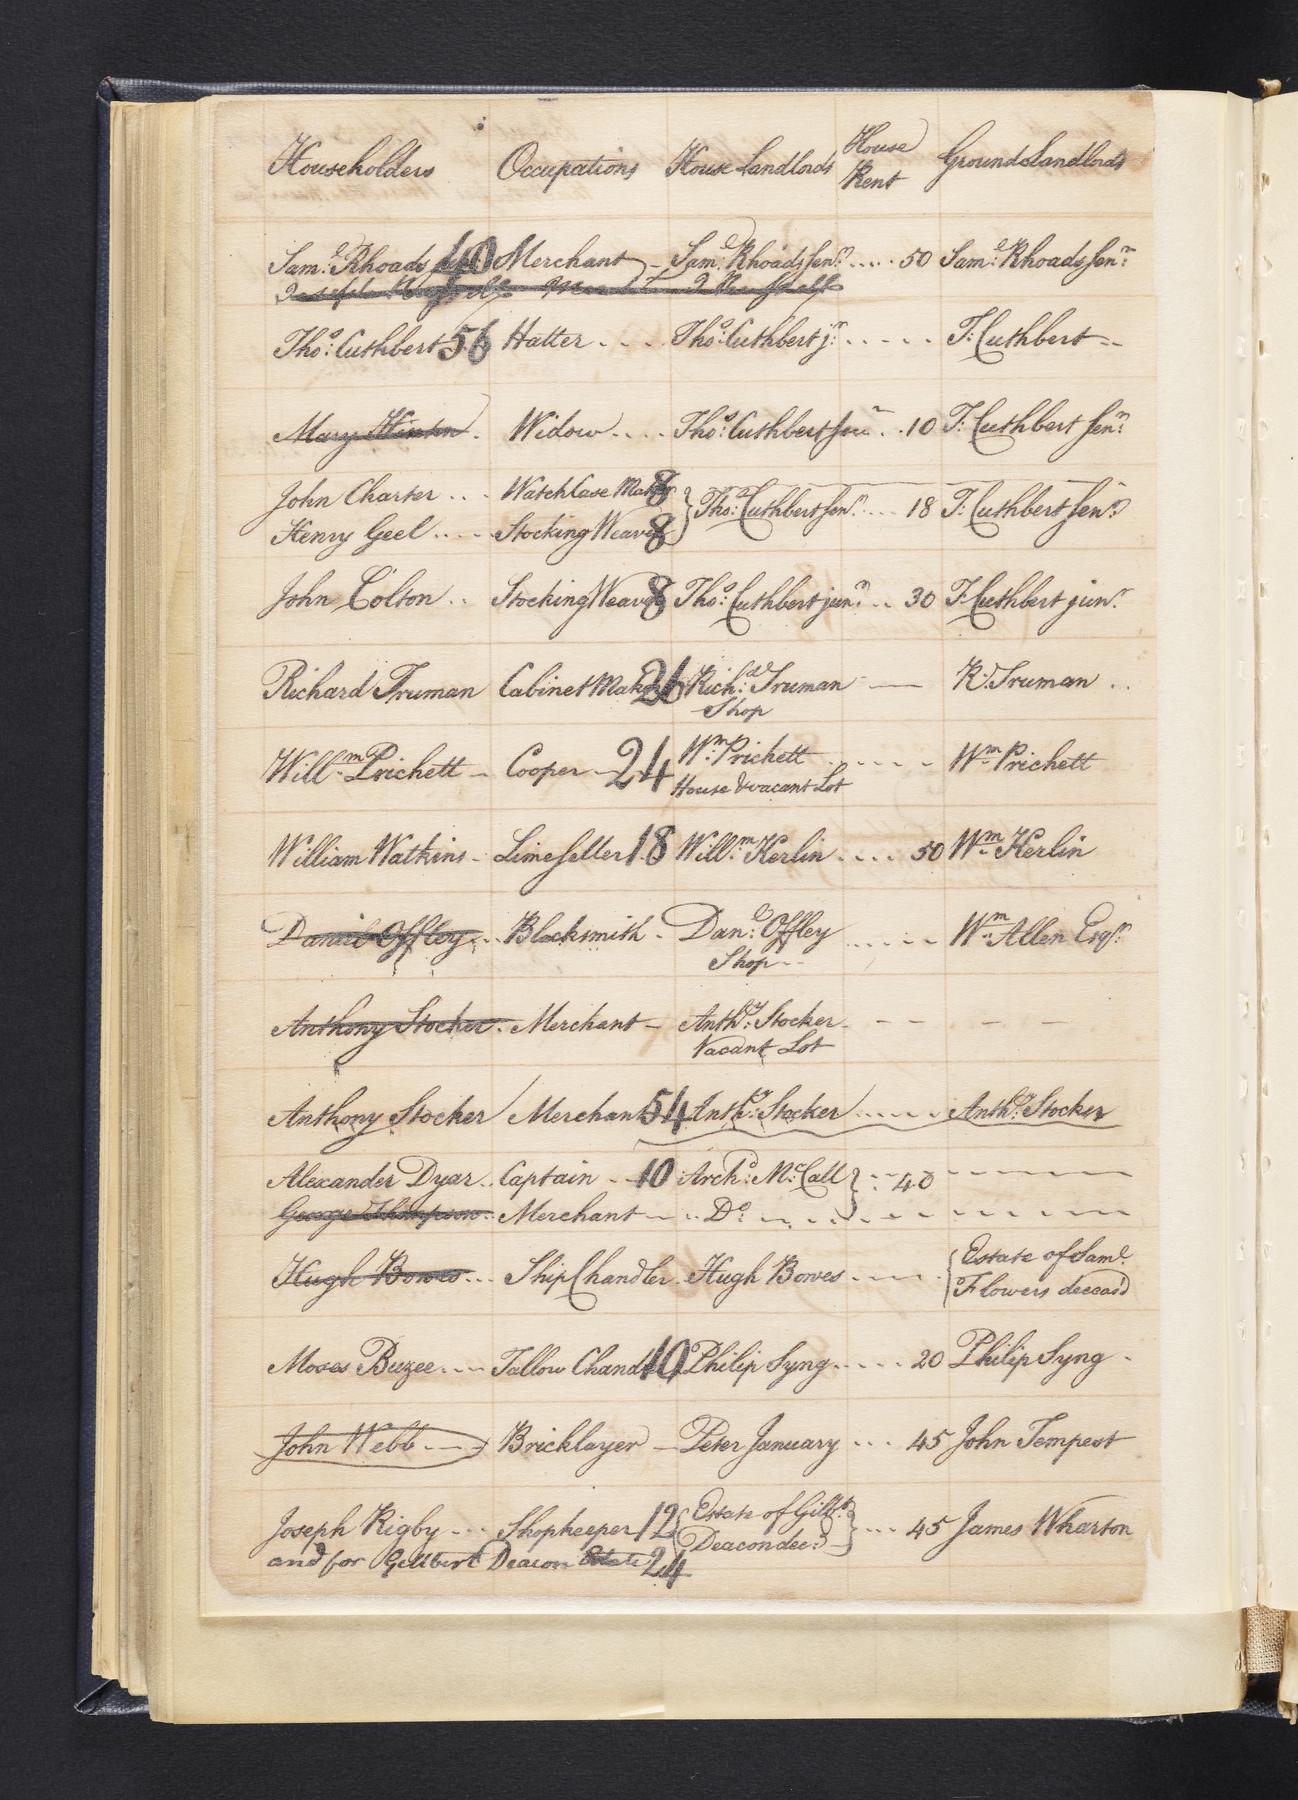 Householders Occupations House Landlords House Rent Ground Landlords
Sam:l Rhoads 40 Merchant - Sam:l Rhoads Sen:r .... 50 Sam:l Rhoads Sen:r
Tho:s Cuthbert 56 Hatter .... Tho:s Cuthbert j:r ..... T: Cuthbert --
Mary . Widow .... Tho:s Cuthbert .. 10 T: Cuthbert Sen:r
John Charter ... Watch Case Maker 8 } Tho:s Cuthbert Sen:r .... 18 T: Cuthbert Sen:r
Henry Geel .... Stocking Weaver 8
John Colton .. Stocking Weaver 8 Tho:s Cuthbert jun:r .. 30 T: Cuthbert jun:r
Richard Truman Cabinet Maker 26 Rich:d Truman — R: Truman ..
Shop
Will:m Prichett - Cooper - 24 W:m Prichett ..... W:m Prichett
House & vacant Lot
William Watkins - Lime Seller 18 Will:m Kerlin .... 50 W:m Kerlin
Daniel Offley ... Blacksmith - Dan:l Offley ..... W:m Allen Esq:r
Shop --
Anthony Stocker . Merchant - Anth:y Stocker - - - - -
Vacant Lot
Anthony Stocker Merchant 54 Anth:y Stocker ..... Anth:y Stocker
Alexander Dyar .. Captain -- 10 Arch:d Mc:Call } .. 40 - - - -
George Thompson .. Merchant -- .. Do: - - - -
Hugh Bowes ... Ship Chandler . Hugh Bowes ---- { Estate of Sam:l
Flowers deceas'd
Moses Buzee .... Tallow Chandler 10 Philip Syng ..... 20 Philip Syng .
John Webb --- Bricklayer - Peter January ... 45 John Tempest
Joseph Rigby --- Shopkeeper 12 { Estate of Gilb:t } ... 45 James Wharton
Deacon dec:d
and for Gilbert Deacon Estate 24